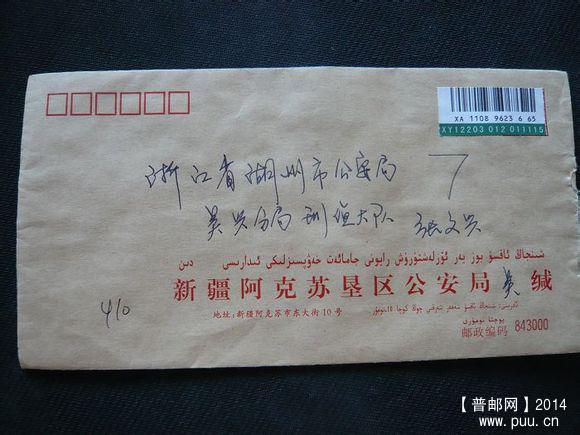 XA 1108 9623 6 65
XY12203 012 011115
浙江省湖州市公安局
吴兴分局刑侦大队 张文兴
شىنجاڭ ئاقسۇ بوز يەر ئۆزلەشتۈرۈش رايونى جامائەت خەۋپسىزلىكى ئىدارىسى دىن
新疆阿克苏垦区公安局 吴 缄
地址:新疆阿克苏市东大街10号
پوچتا نومۇرى
邮政编码 843000
410
【普邮网】2014
www.puu.cn